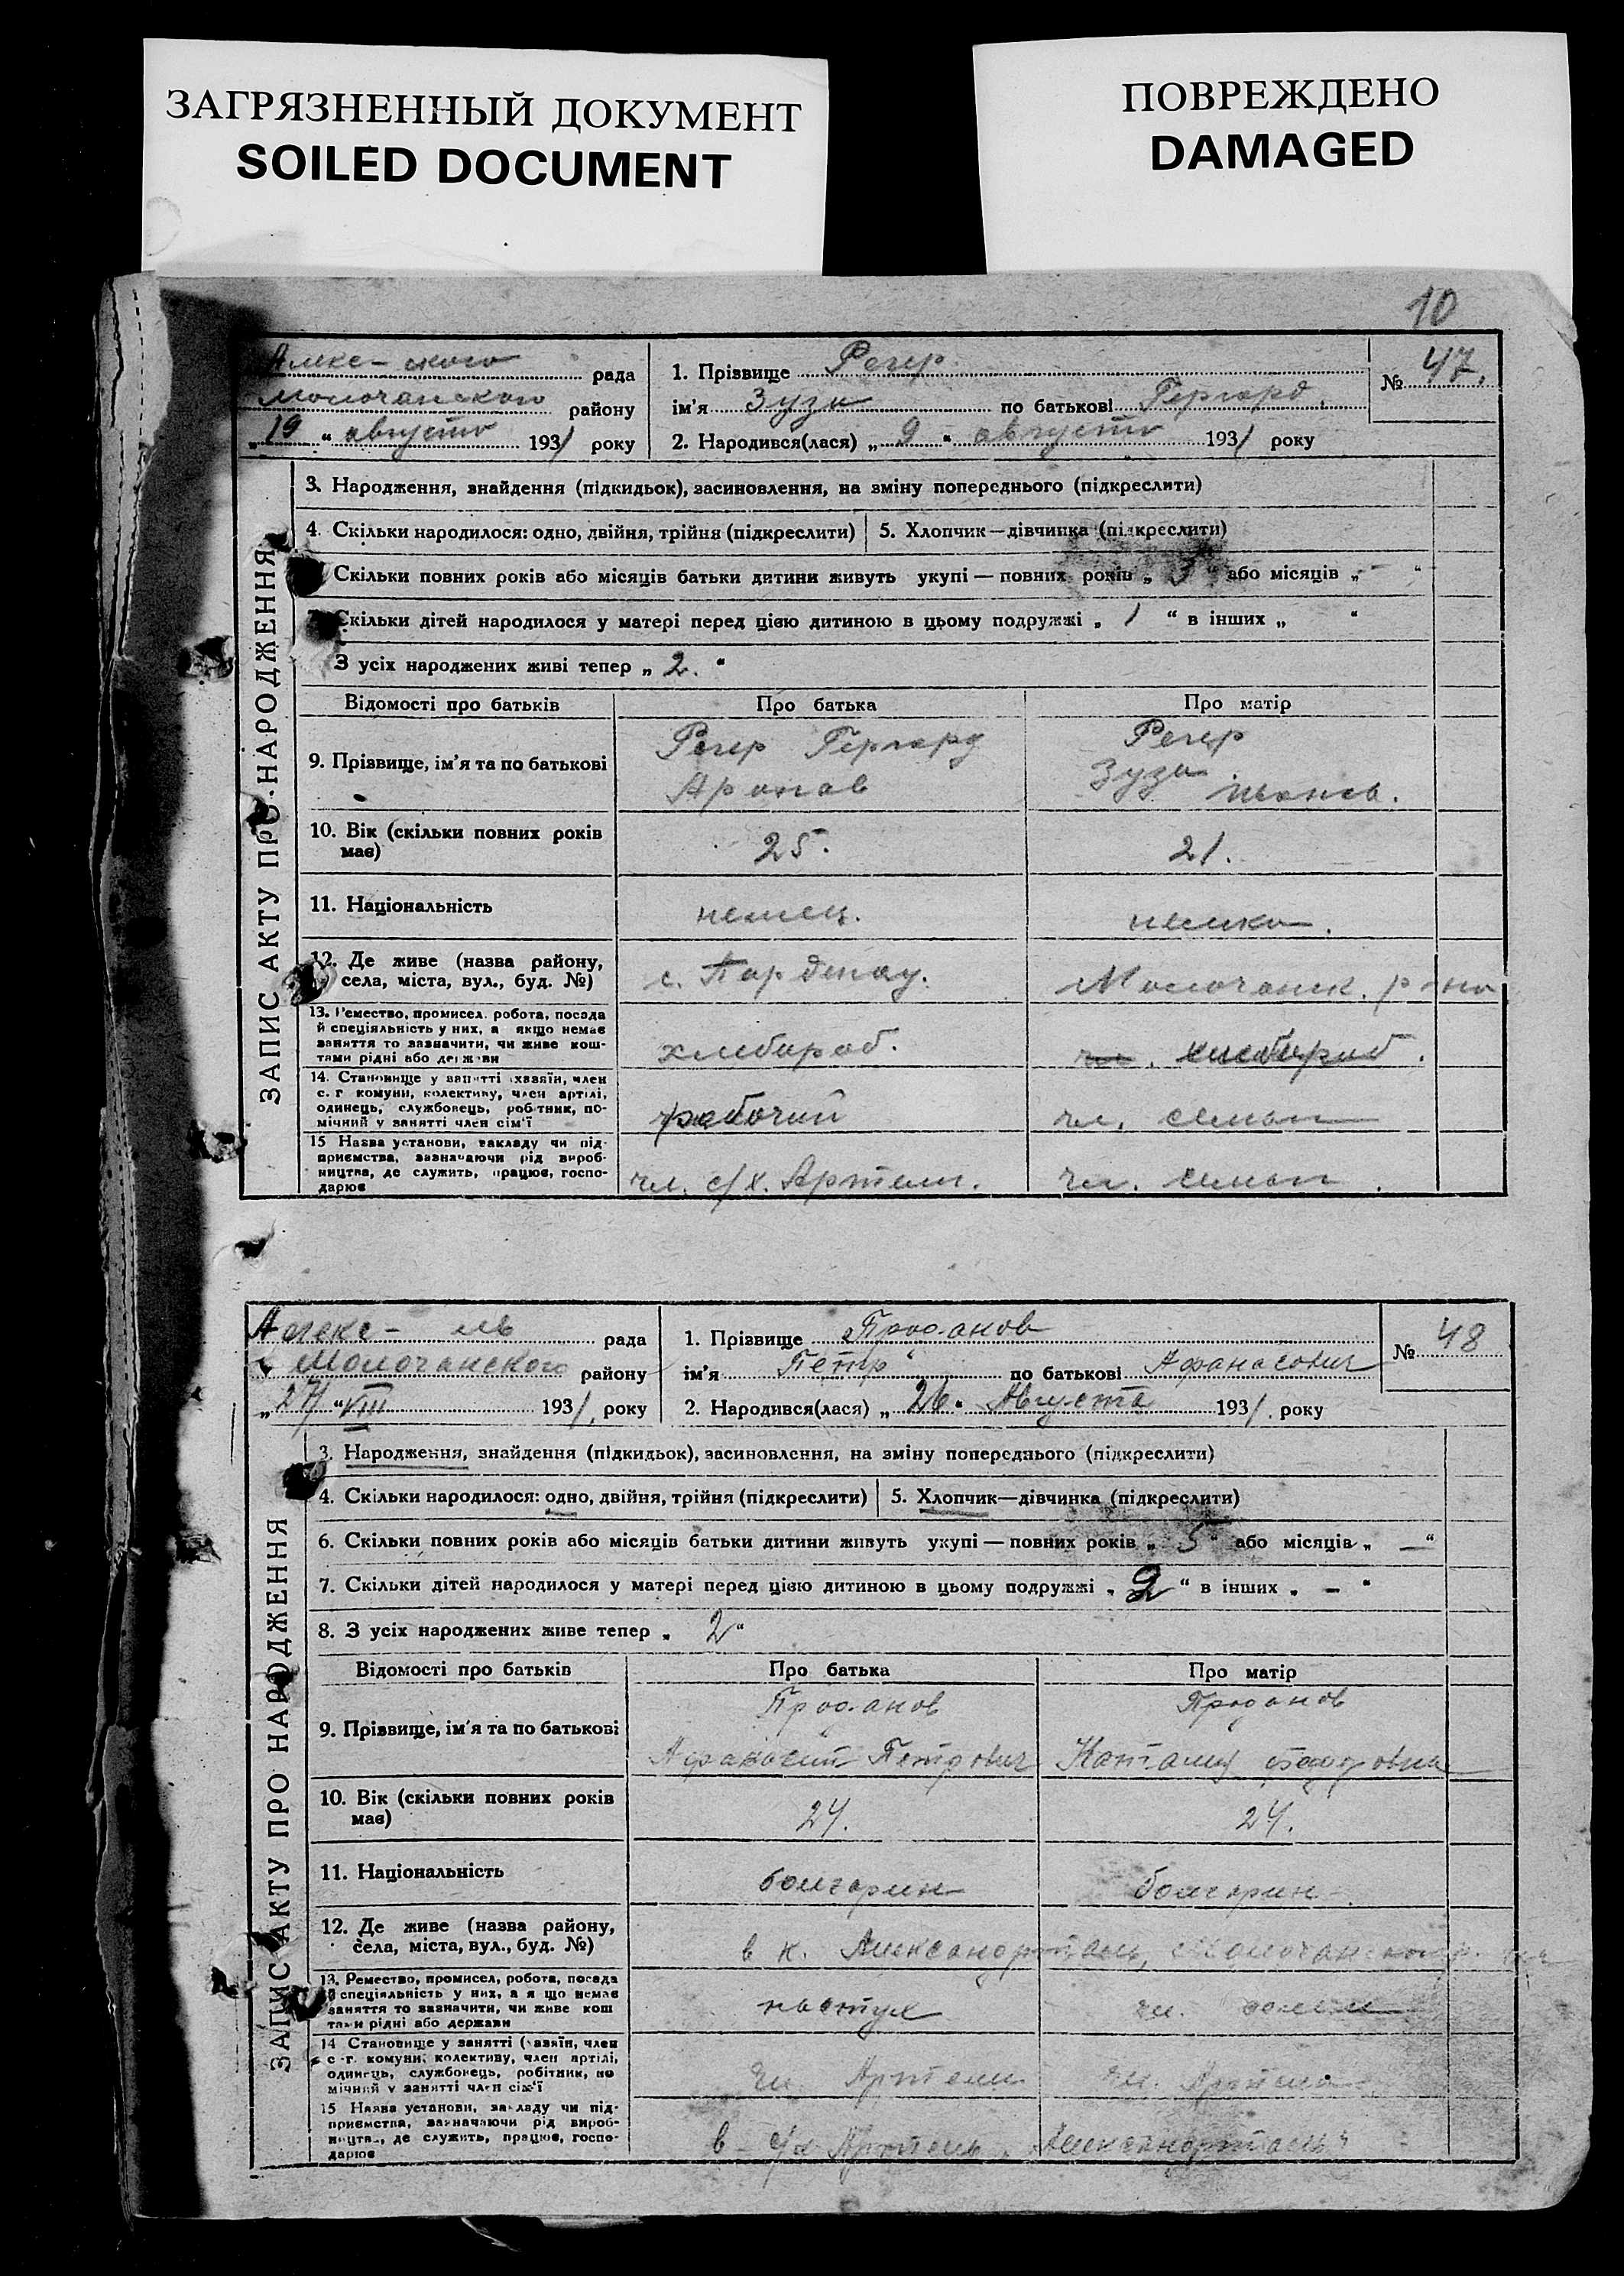 ЗАГРЯЗНЕННЫЙ ДОКУМЕНТ
SOILED DOCUMENT
ПОВРЕЖДЕНО
DAMAGED
10
ЗАПИС АКТУ ПРО НАРОДЖЕННЯ
Алекс-ского рада
Молочанского району
„19“ августа 1931 року
1. Прізвище Регер
ім'я Зуза по батькові Гергард.
2. Народився(лася) „9“ августа 1931 року
№ 47.
3. Народження, знайдення (підкидьок), засиновлення, на зміну попереднього (підкреслити)
4. Скільки народилося: одно, двійня, трійня (підкреслити)
5. Хлопчик—дівчинка (підкреслити)
Скільки повних років або місяців батьки дитини живуть укупі — повних років „3“ або місяців „-“
Скільки дітей народилося у матері перед цією дитиною в цьому подружжі „1“ в інших „ “
З усіх народжених живі тепер „2.“
Відомості про батьків Про батька Про матір
9. Прізвище, ім'я та по батькові
Регер Гергард
Аронов
Регер
Зуза
10. Вік (скільки повних років
має)
25.
21.
11. Національність
немец.
немка.
12. Де живе (назва району,
села, міста, вул., буд. №)
с. Парденау.
Молочанск. р-на
13. Ремество, промисел, робота, посада
й спеціяльність у них, а якщо немає
заняття то зазначити, чи живе кош-
тами рідні або держави
хлебороб.
хлебороб.
14. Становище у занятті (хазяїн, член
с.-г. комуни, колективу, член артілі,
одинець, службовець, робітник, по-
мічний у занятті член сім'ї
рабочий
чл. семьи
15 Назва установи, закладу чи під-
приємства, зазначаючи рід вироб-
ництва, де служить, працює, госпо-
дарює
чл. с/х. Артели.
чл. семьи.
ЗАПИС АКТУ ПРО НАРОДЖЕННЯ
Алекс- рада
Молочанского району
„27“ VIII 1931. року
1. Прізвище Проданов
ім'я Петр по батькові Афанасович
2. Народився(лася) „26“ Августа 1931. року
№ 48
3. Народження, знайдення (підкидьок), засиновлення, на зміну попереднього (підкреслити)
4. Скільки народилося: одно, двійня, трійня (підкреслити)
5. Хлопчик—дівчинка (підкреслити)
6. Скільки повних років або місяців батьки дитини живуть укупі — повних років „5“ або місяців „—“
7. Скільки дітей народилося у матері перед цією дитиною в цьому подружжі „2“ в інших „-“
8. З усіх народжених живе тепер „2“
Відомості про батьків Про батька Про матір
9. Прізвище, ім'я та по батькові
Проданов
Афанасий Петрович
Проданов
Наталия Федоровна
10. Вік (скільки повних років
має)
24.
24.
11. Національність
болгарин
болгарин
12. Де живе (назва району,
села, міста, вул., буд. №)
в к. Александрталь, Молочанского р.
13. Ремество, промисел, робота, посада
й спеціяльність у них, а якщо немає
заняття то зазначити, чи живе кош
тами рідні або держави
пастух
чл. семьи
14 Становище у занятті (хазяїн, член
с.-г. комуни, колективу, член артілі,
одинець, службовець, робітник, по
мічний у занятті член сім'ї
чл Артели
чл. Артели
15 Назва установи, закладу чи під-
приємства, зазначаючи рід вироб-
ництва, де служить, працює, госпо-
дарює
в с/х Артель „Александрталь“